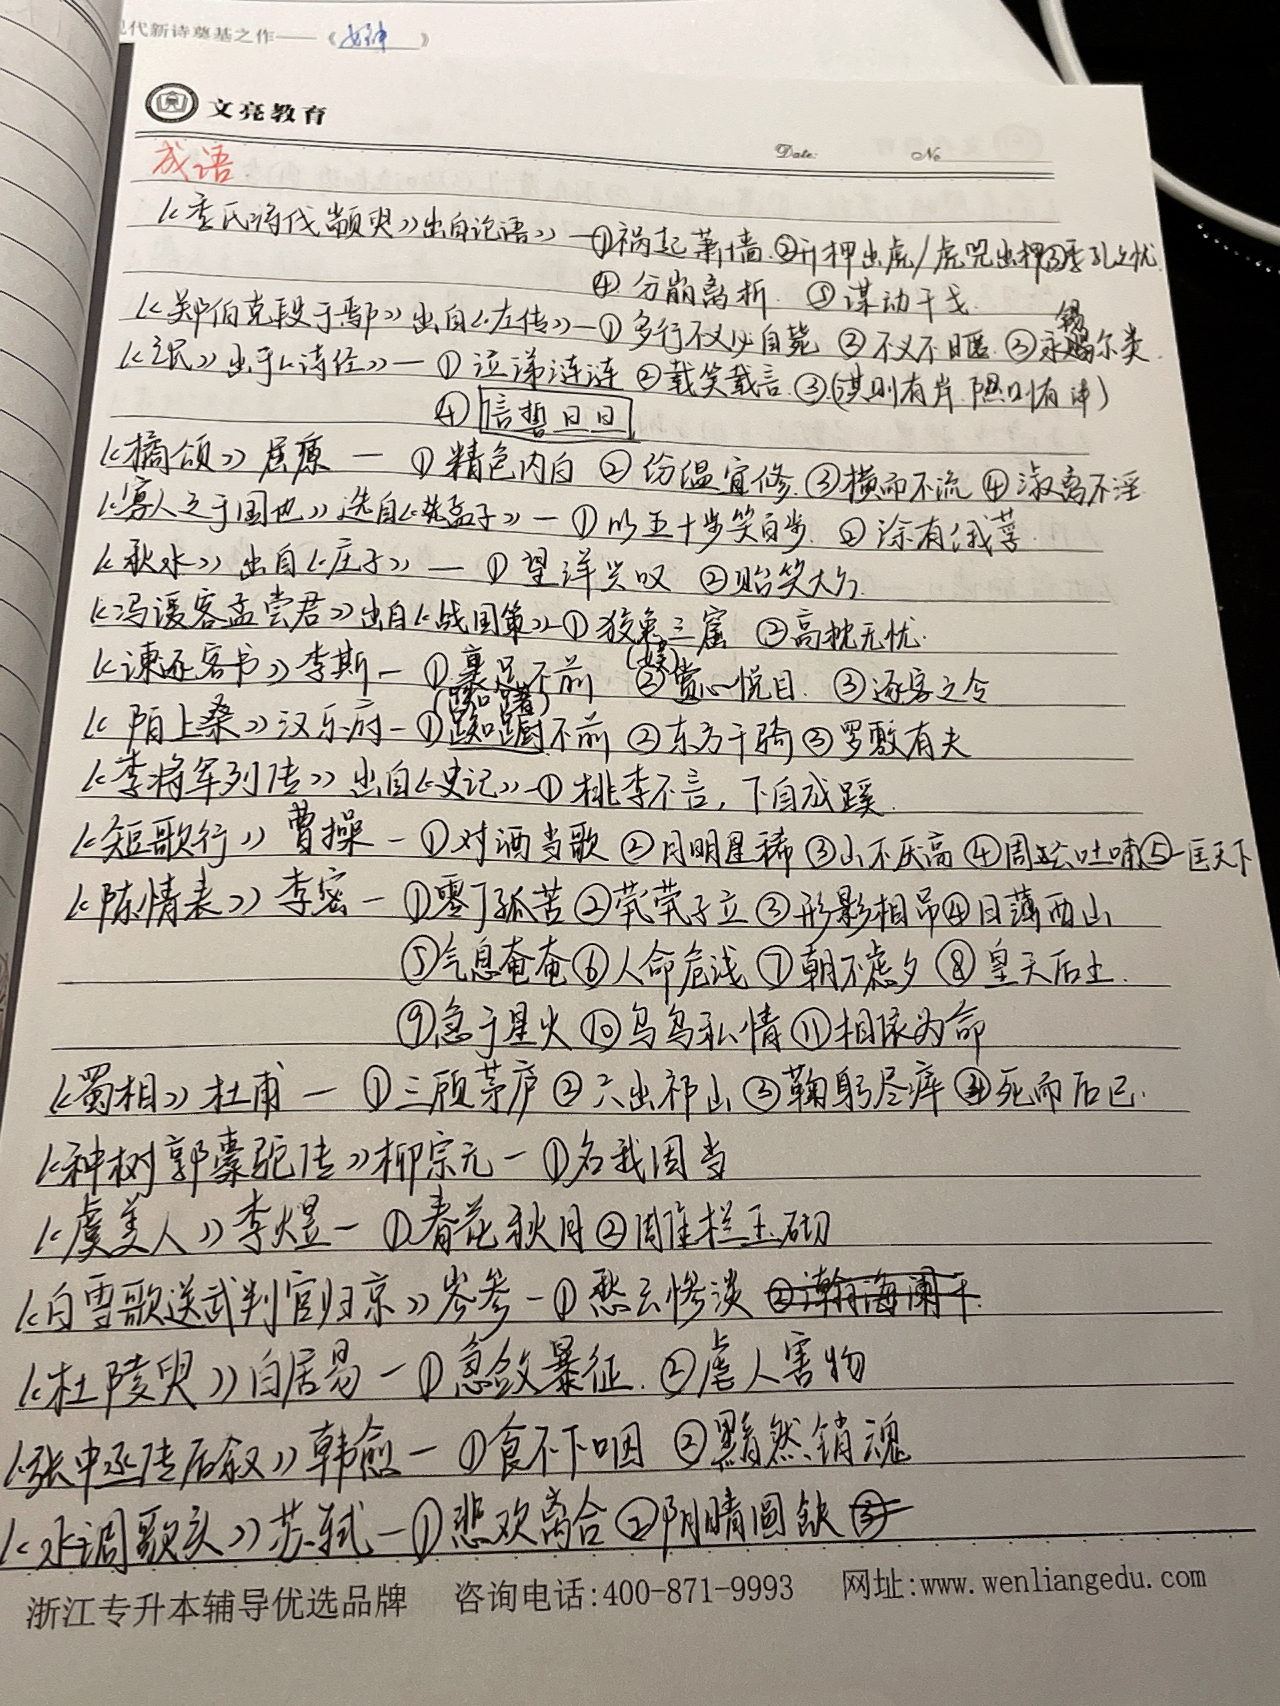 代新诗奠基之作——《女神》
文亮教育
Date: No
成语
《季氏将伐颛臾》出自论语》—①祸起萧墙.②开押出虎/虎兕出押③季孙之忧
④分崩离析. ⑤谋动干戈.
《郑伯克段于鄢》出自《左传》—①多行不义必自毙 ②不义不暱.③永锡尔类.
《氓》出于《诗经》—①泣涕涟涟 ②载笑载言.③(淇则有岸.隰则有泮)
④信誓旦旦
《橘颂》屈原—①精色内白 ②纷缊宜修.③横而不流④淑离不淫
《寡人之于国也》选自《孟子》—①以五十步笑百步. ②涂有饿莩.
《秋水》出自《庄子》—①望洋兴叹 ②贻笑大方.
《冯谖客孟尝君》出自《战国策》—①狡兔三窟 ②高枕无忧.
《谏逐客书》李斯—①裹足不前 ②赏心悦目. (娱) ③逐客之令
《陌上桑》汉乐府—①踟蹰不前 (踟躇) ②东方千骑③罗敷有夫
《李将军列传》出自《史记》—①桃李不言，下自成蹊.
《短歌行》曹操—①对酒当歌 ②月明星稀③山不厌高④周公吐哺⑤一匡天下
《陈情表》李密—①零丁孤苦②茕茕孑立③形影相吊④日薄西山
⑤气息奄奄⑥人命危浅⑦朝不虑夕⑧皇天后土.
⑨急于星火⑩乌鸟私情⑪相依为命
《蜀相》杜甫—①三顾茅庐②六出祁山③鞠躬尽瘁④死而后已.
《种树郭橐驼传》柳宗元—①名我固当
《虞美人》李煜—①春花秋月②周惟栏玉砌
《白雪歌送武判官归京》岑参—①愁云惨淡 ②瀚海阑干.
《杜陵叟》白居易—①急敛暴征.②虐人害物
《张中丞传后叙》韩愈—①食不下咽 ②黯然销魂
《水调歌头》苏轼—①悲欢离合②阴晴圆缺③
浙江专升本辅导优选品牌 咨询电话:400-871-9993 网址:www.wenliangedu.com